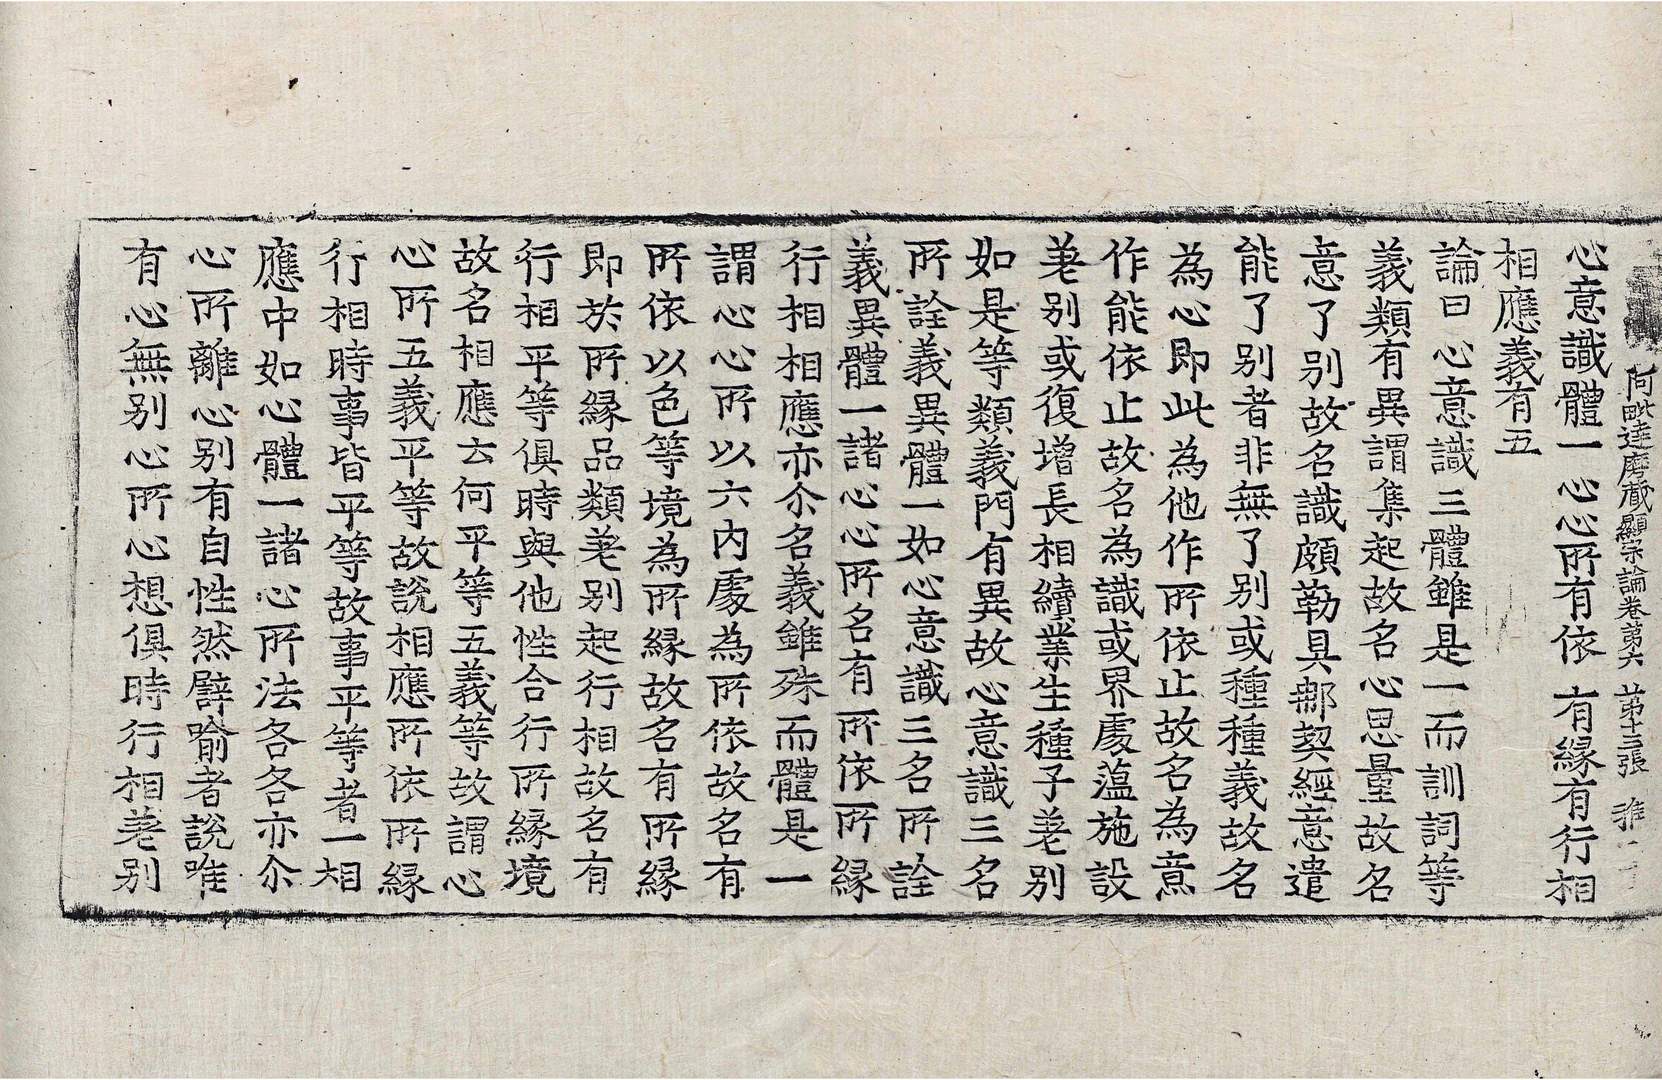 阿毗達磨藏顯宗論卷第六 第十三張
心意識體一 心心所有依 有縁有行相
相應義有五
論曰心意識三體雖是一而訓詞等
義類有異謂集起故名心思量故名
意了別故名識頗勒具那契經意遣
能了別者非無了別或種種義故名
為心即此為他作所依止故名為意
作能依止故名為識或界處蕰施設
差別或復增長相續業生種子差別
如是等類義門有異故心意識三名
所詮義異體一如心意識三名所詮
義異體一諸心心所名有所依所縁
行相相應亦尒名義雖殊而體是一
謂心心所以六內處為所依故名有
所依以色等境為所縁故名有所縁
即於所縁品類差別起行相故名有
行相平等俱時與他性合行所縁境
故名相應云何平等五義等故謂心
心所五義平等故說相應所依所縁
行相時事皆平等故事平等者一相
應中如心體一諸心所法各各亦尒
心所離心別有自性然譬喻者說唯
有心無別心所心想俱時行相差別